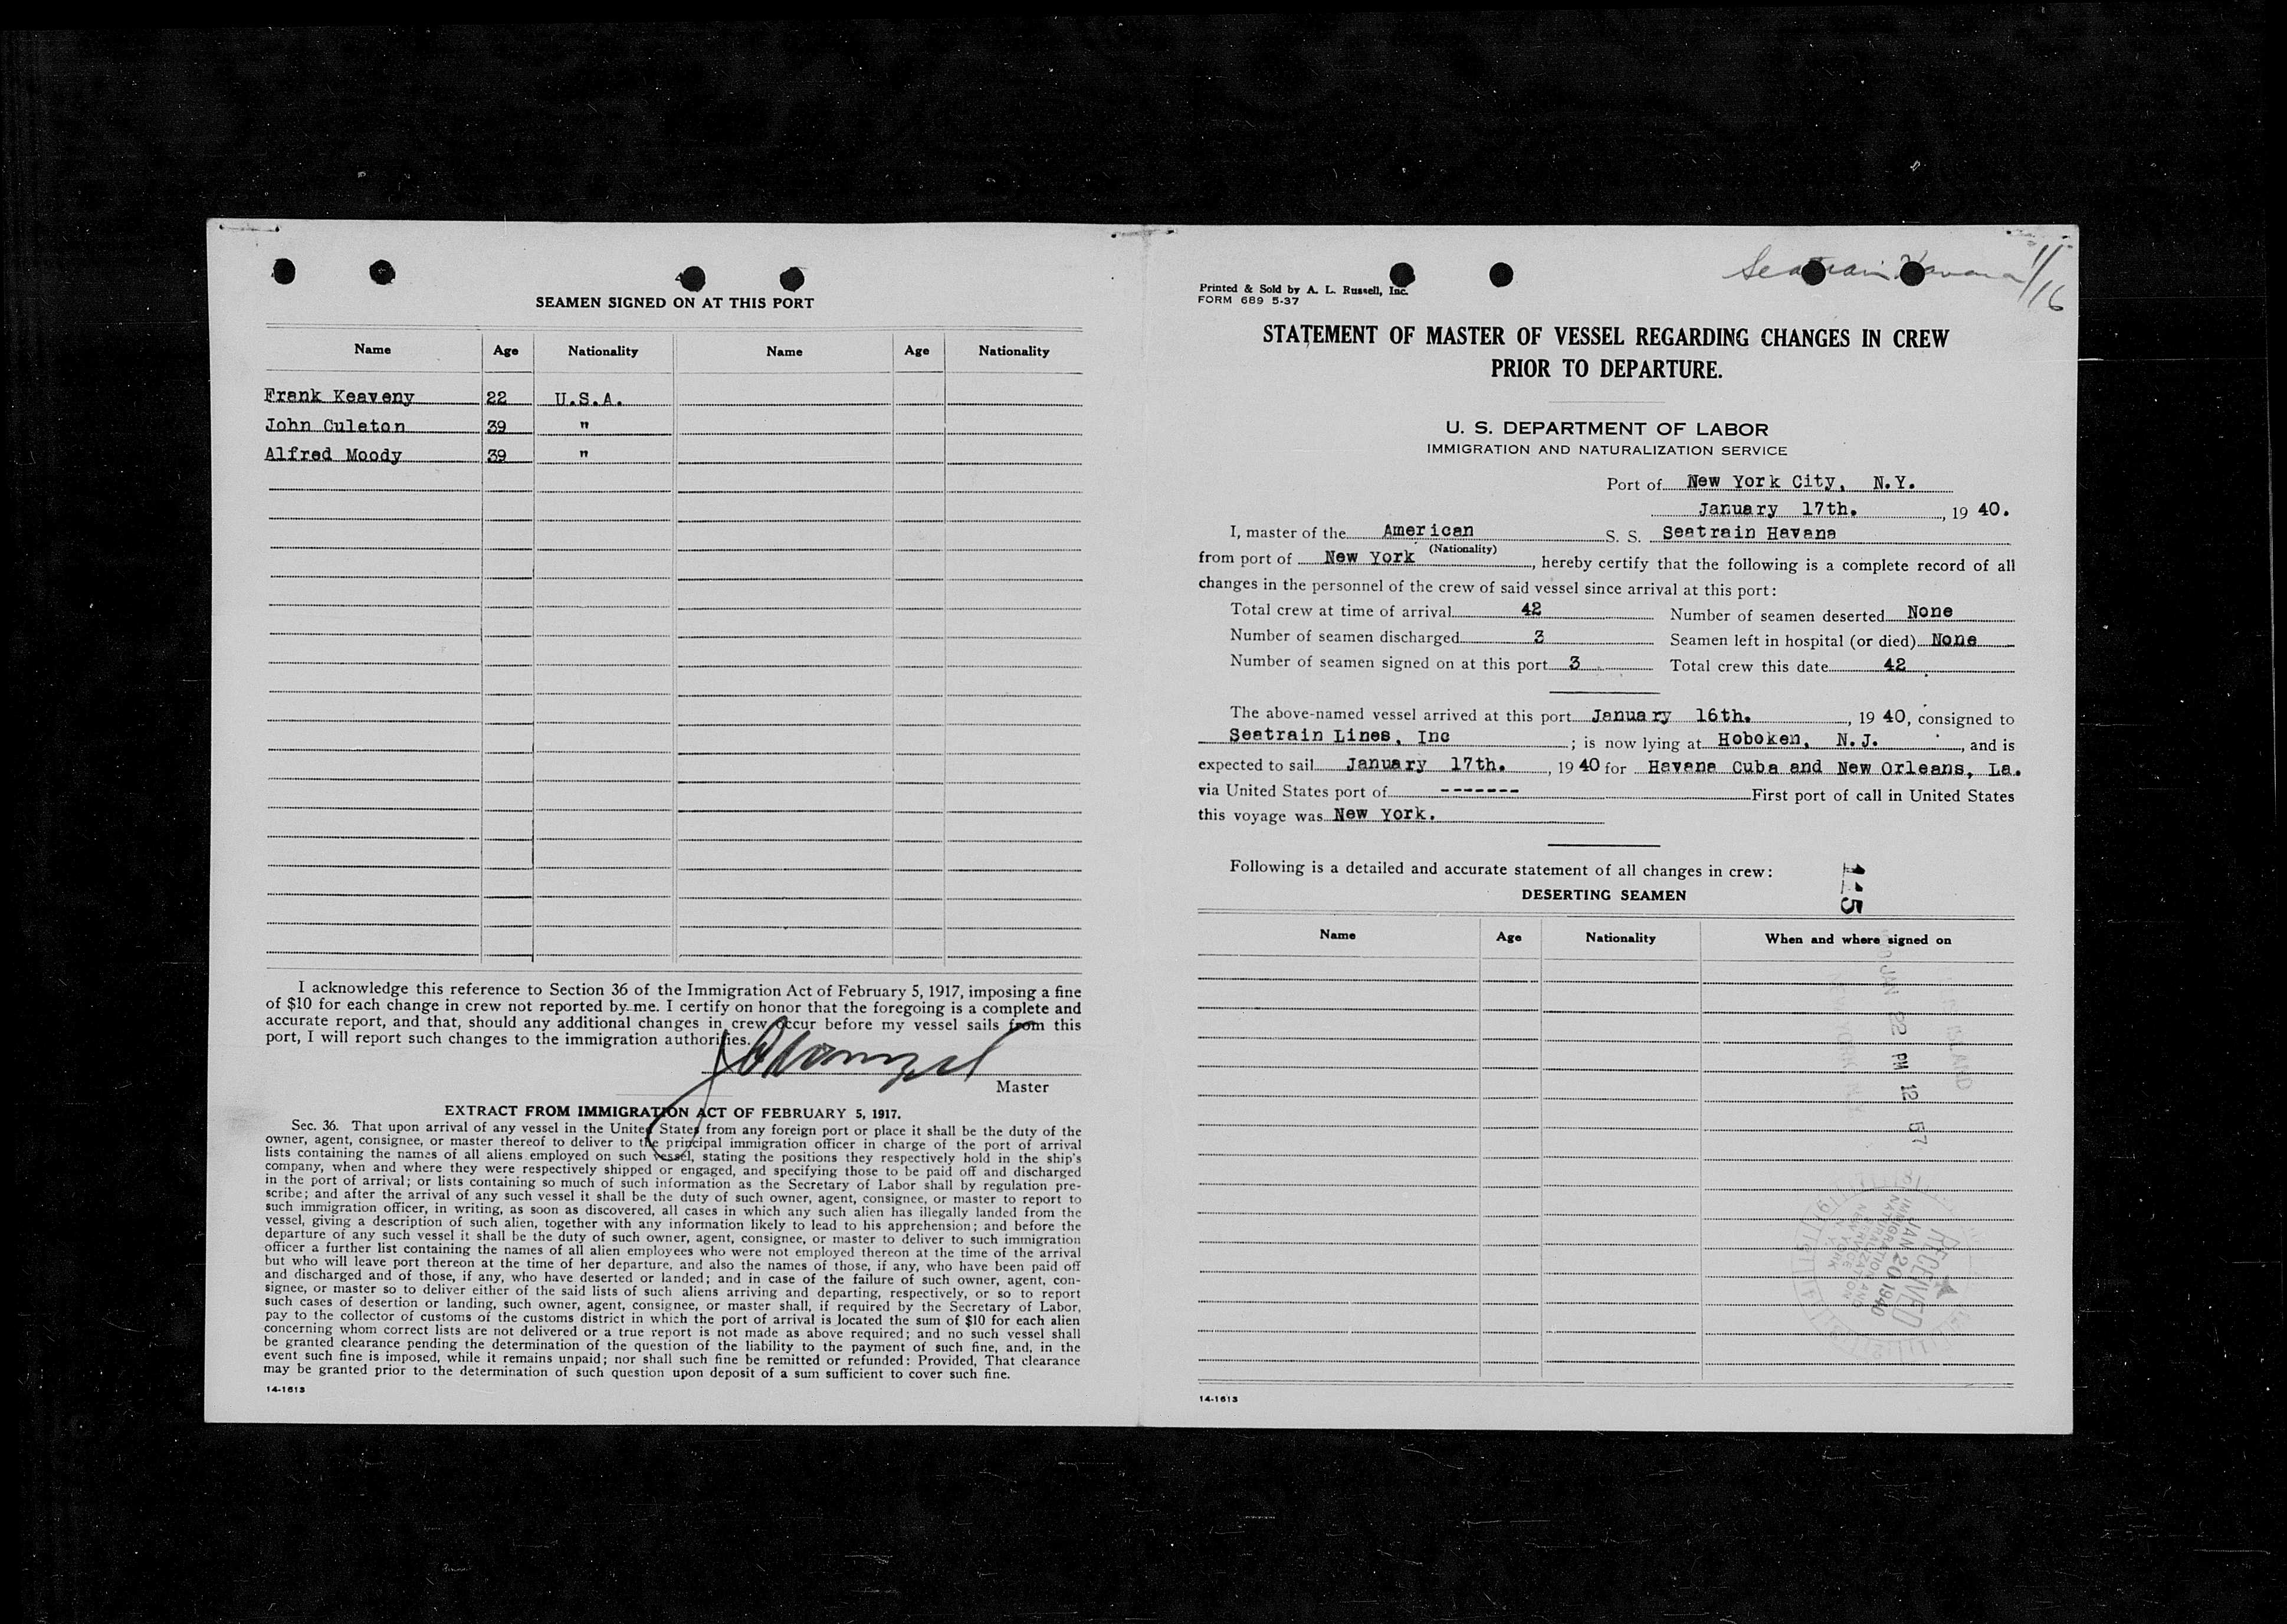 SEAMEN SIGNED ON AT THIS PORT
Name Age Nationality Name Age Nationality
Frank Keaveny 22 U.S.A.
John Culeton 39 "
Alfred Moody 39 "
I acknowledge this reference to Section 36 of the Immigration Act of February 5, 1917, imposing a fine
of $10 for each change in crew not reported by me. I certify on honor that the foregoing is a complete and
accurate report, and that, should any additional changes in crew occur before my vessel sails from this
port, I will report such changes to the immigration authorities.
Master
EXTRACT FROM IMMIGRATION ACT OF FEBRUARY 5, 1917.
Sec. 36. That upon arrival of any vessel in the United States from any foreign port or place it shall be the duty of the
owner, agent, consignee, or master thereof to deliver to the principal immigration officer in charge of the port of arrival
lists containing the names of all aliens employed on such vessel, stating the positions they respectively hold in the ship's
company, when and where they were respectively shipped or engaged, and specifying those to be paid off and discharged
in the port of arrival; or lists containing so much of such information as the Secretary of Labor shall by regulation pre-
scribe; and after the arrival of any such vessel it shall be the duty of such owner, agent, consignee, or master to report to
such immigration officer, in writing, as soon as discovered, all cases in which any such alien has illegally landed from the
vessel, giving a description of such alien, together with any information likely to lead to his apprehension; and before the
departure of any such vessel it shall be the duty of such owner, agent, consignee, or master to deliver to such immigration
officer a further list containing the names of all alien employees who were not employed thereon at the time of the arrival
but who will leave port thereon at the time of her departure, and also the names of those, if any, who have been paid off
and discharged and of those, if any, who have deserted or landed; and in case of the failure of such owner, agent, con-
signee, or master so to deliver either of the said lists of such aliens arriving and departing, respectively, or so to report
such cases of desertion or landing, such owner, agent, consignee, or master shall, if required by the Secretary of Labor,
pay to the collector of customs of the customs district in which the port of arrival is located the sum of $10 for each alien
concerning whom correct lists are not delivered or a true report is not made as above required; and no such vessel shall
be granted clearance pending the determination of the question of the liability to the payment of such fine, and, in the
event such fine is imposed, while it remains unpaid; nor shall such fine be remitted or refunded: Provided, That clearance
may be granted prior to the determination of such question upon deposit of a sum sufficient to cover such fine.
14-1613
Seatrain Havana 1/16
Printed & Sold by A. L. Russell, Inc.
FORM 689 5-37
STATEMENT OF MASTER OF VESSEL REGARDING CHANGES IN CREW
PRIOR TO DEPARTURE.
U. S. DEPARTMENT OF LABOR
IMMIGRATION AND NATURALIZATION SERVICE
Port of New York City, N.Y.
January 17th., 19 40.
I, master of the American S. S. Seatrain Havana
(Nationality)
from port of New York, hereby certify that the following is a complete record of all
changes in the personnel of the crew of said vessel since arrival at this port:
Total crew at time of arrival 42 Number of seamen deserted None
Number of seamen discharged 3 Seamen left in hospital (or died) None
Number of seamen signed on at this port 3 Total crew this date 42
The above-named vessel arrived at this port January 16th., 19 40, consigned to
Seatrain Lines, Inc; is now lying at Hoboken, N.J., and is
expected to sail January 17th., 19 40 for Havana Cuba and New Orleans, La.
via United States port of ------- First port of call in United States
this voyage was New York.
Following is a detailed and accurate statement of all changes in crew:
115
DESERTING SEAMEN
Name Age Nationality When and where signed on
JAN 22 PM 12 57
NEW YORK N.Y.
RECEIVED
JAN 20 1940
IMMIGRATION AND
NATURALIZATION
SERVICE
NEW YORK
14-1613